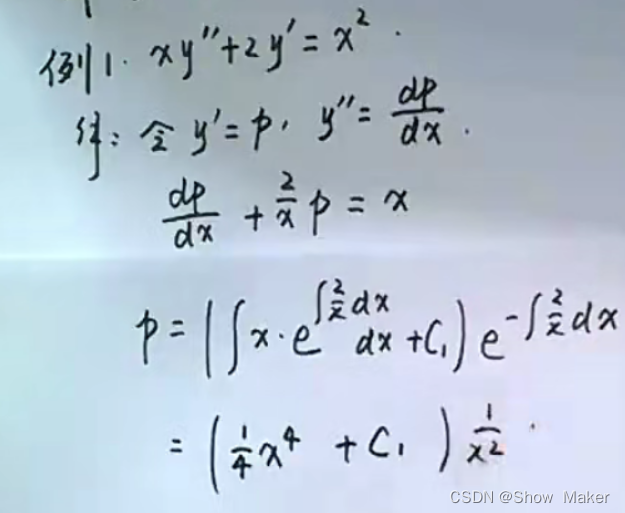 例1. xy″+2y′=x².
解: 令 y′=p, y″=dp/dx.
dp/dx + 2/x p = x
p = (∫x·e^∫2/x dx dx+C₁) e^-∫2/x dx
= (1/4 x⁴ + C₁) 1/x².
CSDN @Show Maker